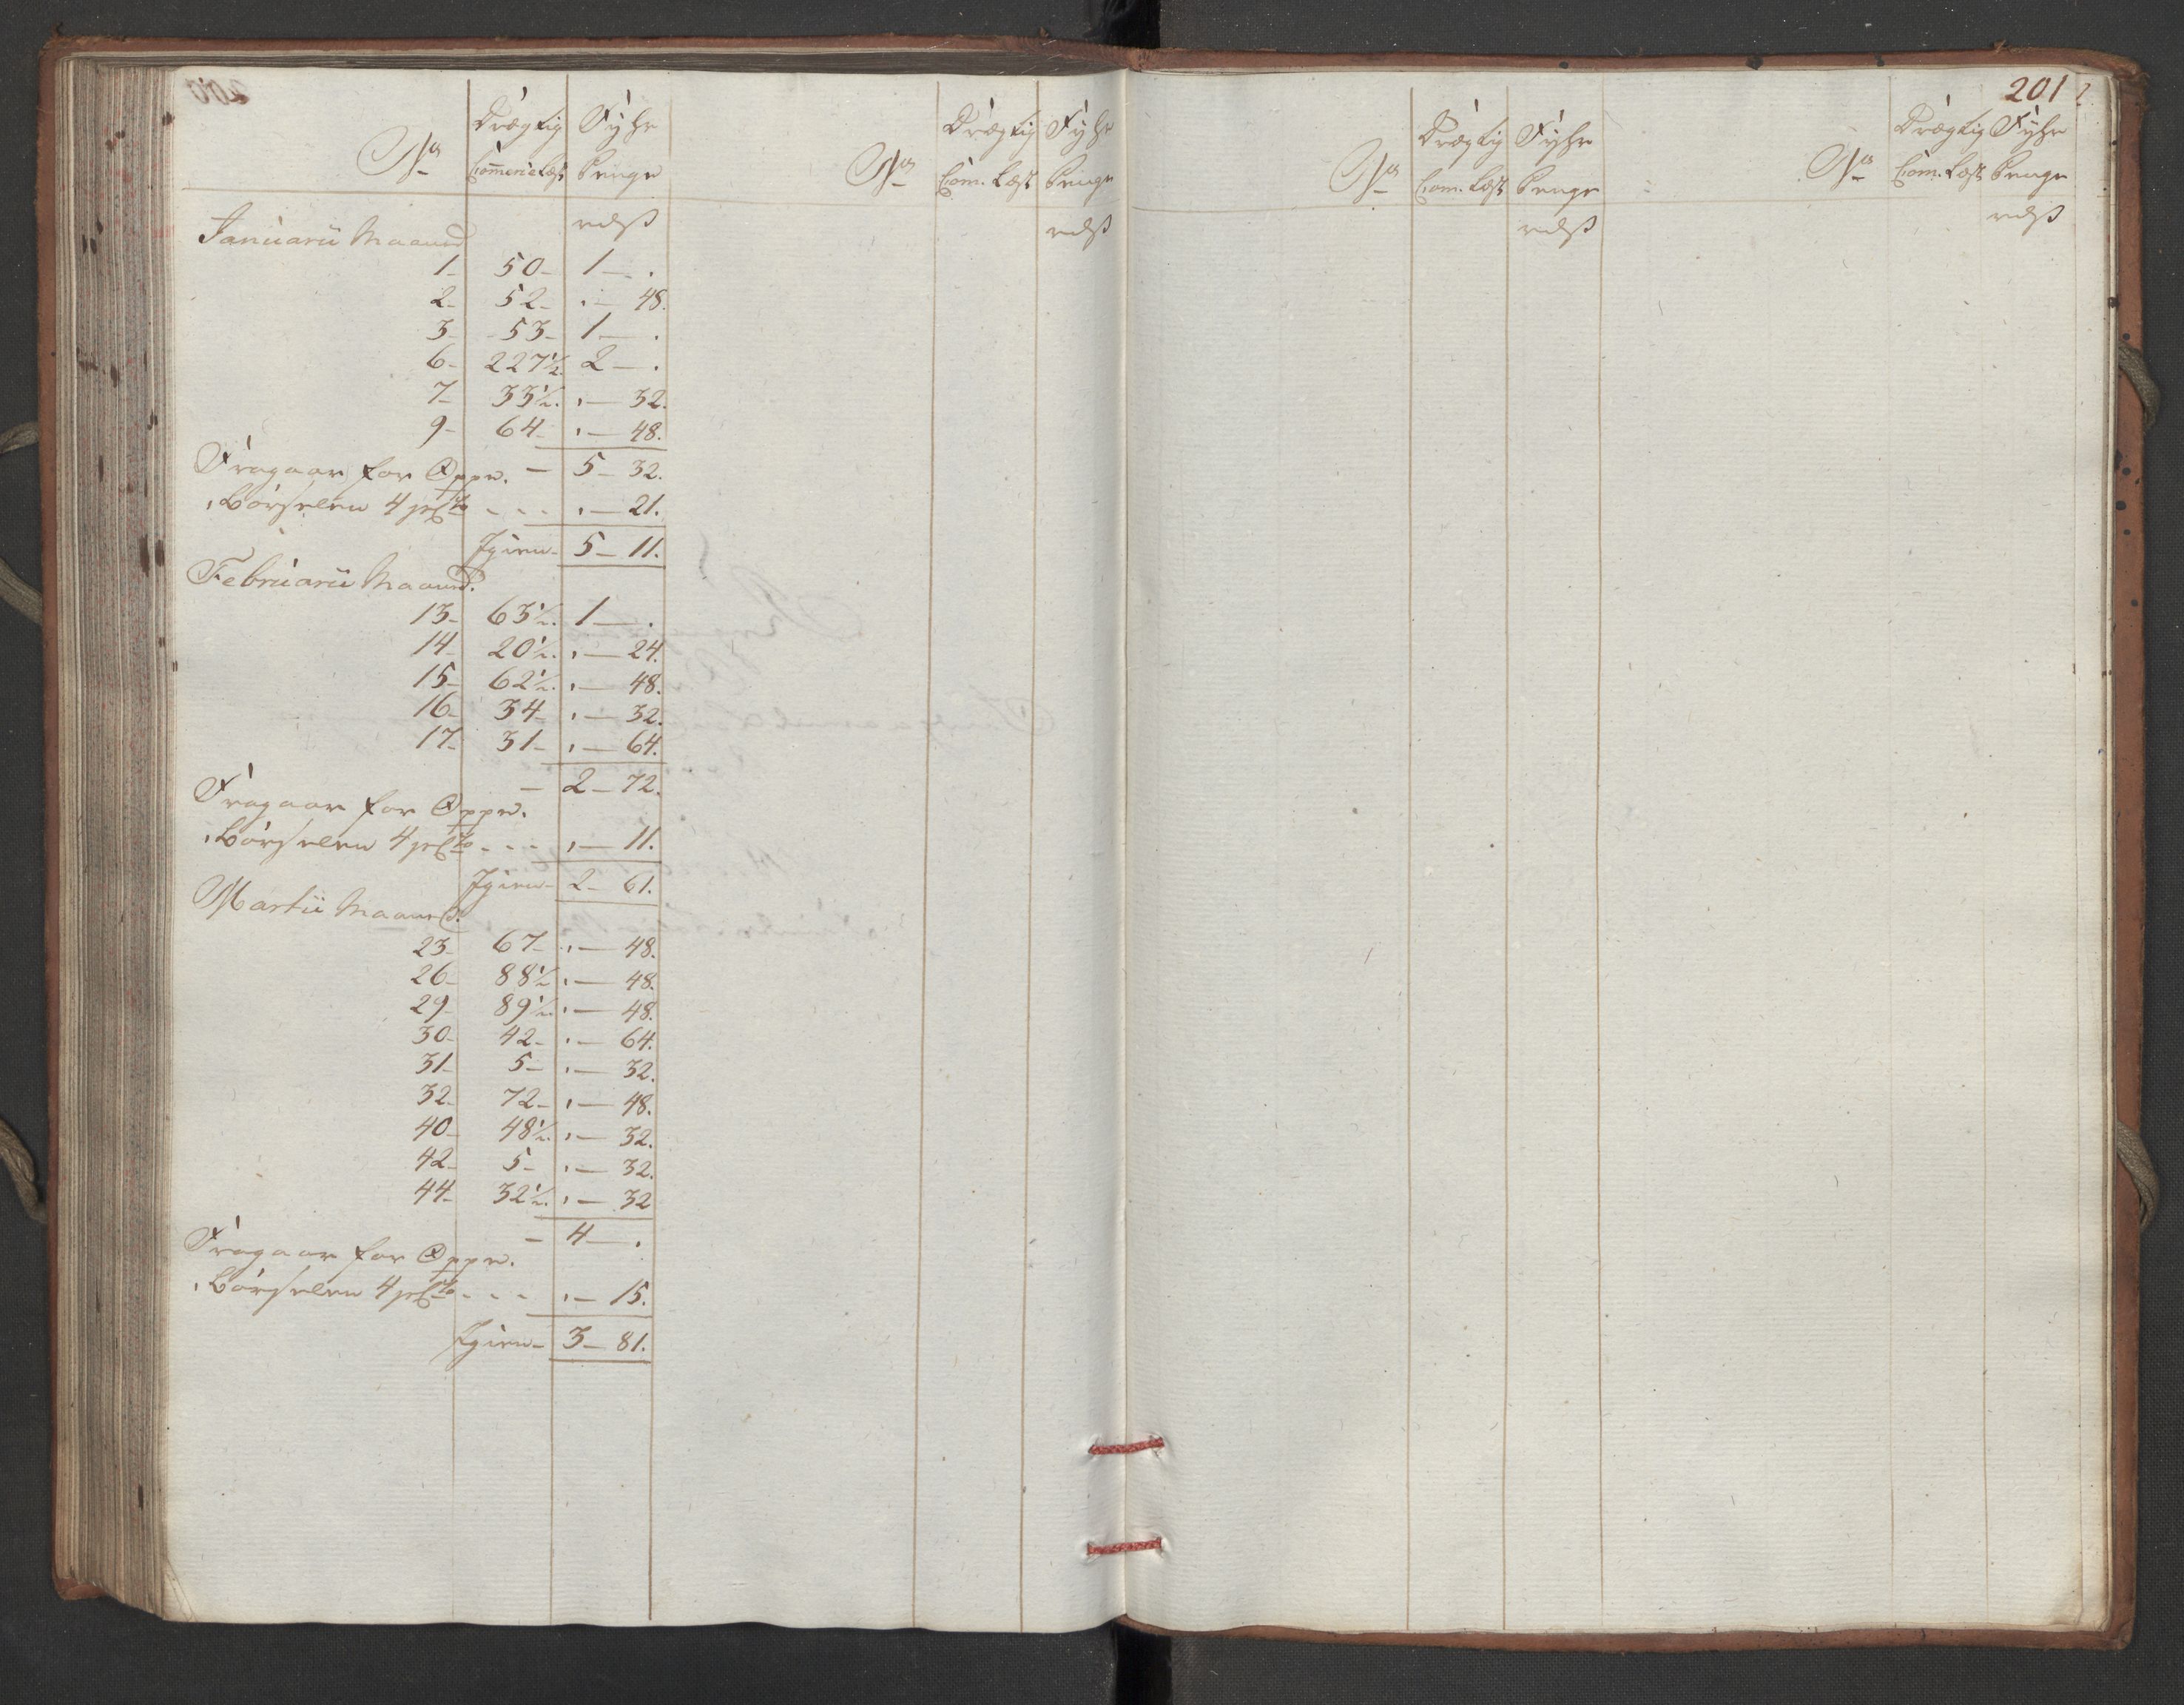 201
No
Drægtig
Commerce Læst
Fyhr
Penge
rdß
Januarii Maaned
1 - 50 - 1 - .
2 - 52 - . - 48.
3 - 53 - 1 - .
6 - 227½. 2 - .
7 - 33½. . - 32.
9 - 64 - . - 48.
Fragaar for Oppe. - 5 - 32.
Børselen 4 pCto - - - . - 21.
Igien - 5 - 11.
Februarii Maaned.
13 - 63½. 1 - .
14 - 20½. . - 24.
15 - 62½. . - 48.
16 - 34 - . - 32.
17 - 31 - . - 64.
- 2 - 72.
Fragaar for Oppe.
Børselen 4 pCto - - - . - 11.
Igien - 2 - 61.
Martii Maaned.
23 - 67 - . - 48.
26 - 88½ . - 48.
29 - 89½. . - 48.
30 - 42 - . - 64.
31 - 5 - . - 32.
32 - 72 - . - 48.
40 - 48½. . - 32.
42 - 5 - . - 32.
44 - 32½. . - 32
- 4 - .
Fragaar for Oppe.
Børselen 4 pCto - - - . - 15.
Igien - 3 - 81.
No
Drægtig
Com. Læst
Fyhr
Penge
rdß
No
Drægtig
Com. Læst
Fyhr
Penge
rdß
No
Drægtig
Com. Læst
Fyhr
Penge
rdß